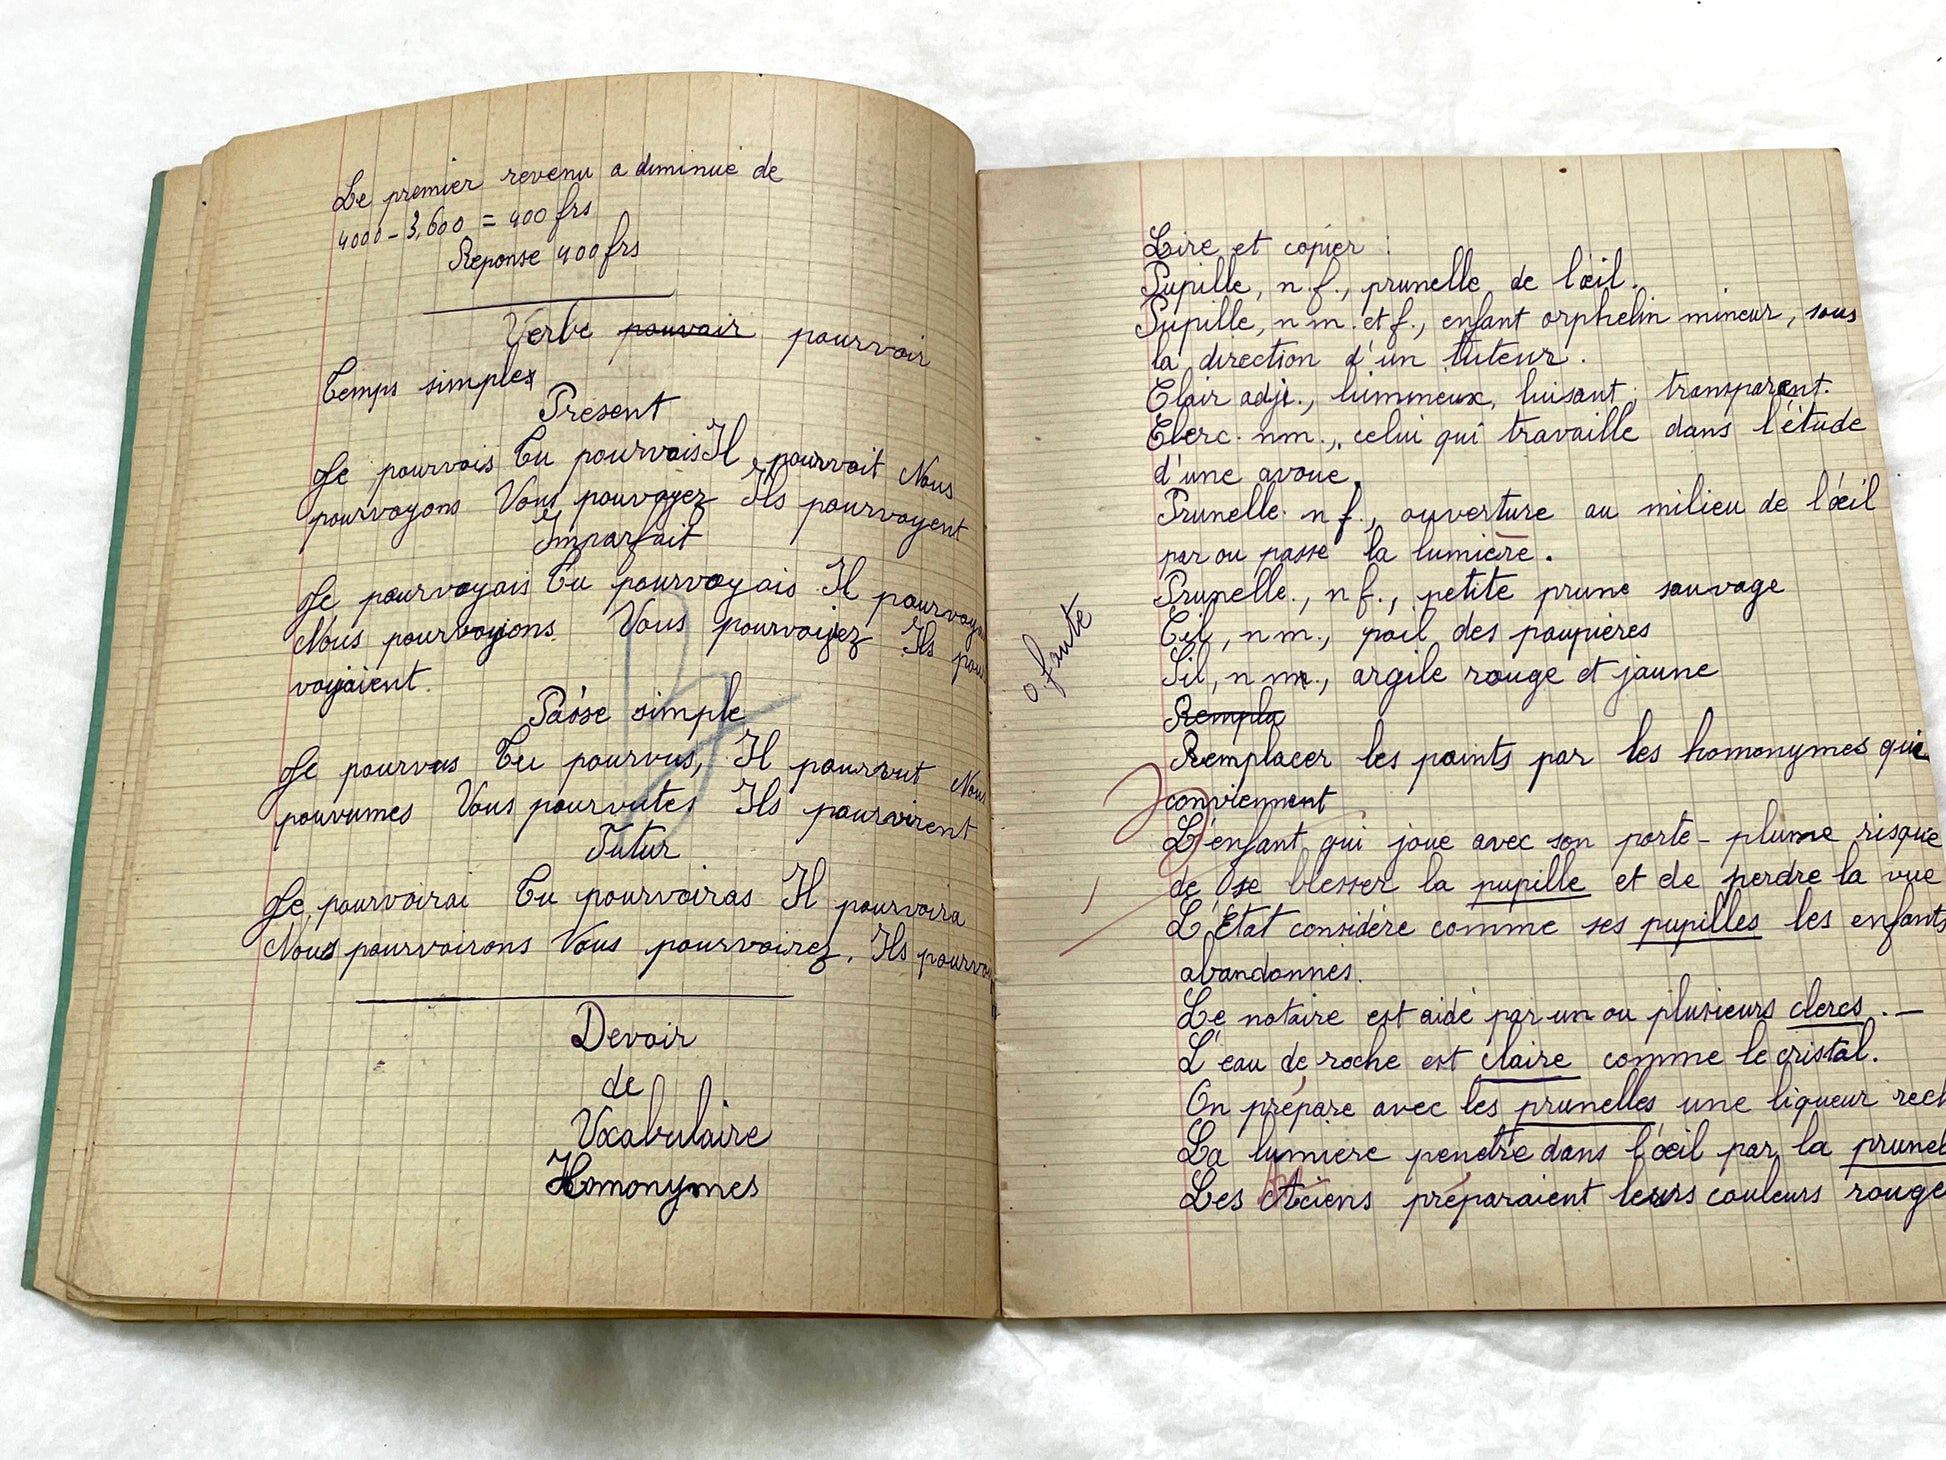 Le premier revenu a diminué de
4000 - 3,600 = 400 frs
Reponse 400 frs
Verbe pouvoir pourvoir
Temps simples
Présent
Je pourvois Tu pourvois Il pourvoit Nous
pourvoyons Vous pouvoyez Ils pourvoyent
Imparfait
Je pourvoyais Tu pourvoyais Il pourvoya
Nous pourvoyions Vous pourvoyiez Ils pour
voyaient.
Passe simple
Je pourvus Tu pourvus, Il pourvut Nous
pouvumes Vous pourvutes Ils pourvirent
Futur
Je pourvoirai Tu pourvoiras Il pourvoira
Nous pourvoirons Vous pourvoirez. Ils pourvoi
Devoir
de
Vocabulaire
Homonymes
Lire et copier :
Pupille, n.f., prunelle de l'œil.
Pupille, n m. et f., enfant orphelin mineur, sous
la direction d'un tuteur.
Clair adj., lumineux, luisant, transparent.
Clerc. nm., celui qui travaille dans l'étude
d'une avoué.
Prunelle. n f., ouverture au milieu de l'œil
par ou passe la lumière.
Prunelle., n f., petite prune sauvage
Cil, n m., poil des paupières
Sil, n m., argile rouge et jaune
o faute
Rempla
Remplacer les points par les homonymes qui
conviennent
L'enfant qui joue avec son porte-plume risque
de se blesser la pupille et de perdre la vue
L'État considère comme ses pupilles les enfants
abandonnés.
Le notaire est aidé par un ou plusieurs clercs. -
L'eau de roche est claire comme le cristal.
On prépare avec les prunelles une liqueur rech
La lumière penétre dans l'œil par la prunel
Les préparaient leurs couleurs rouge